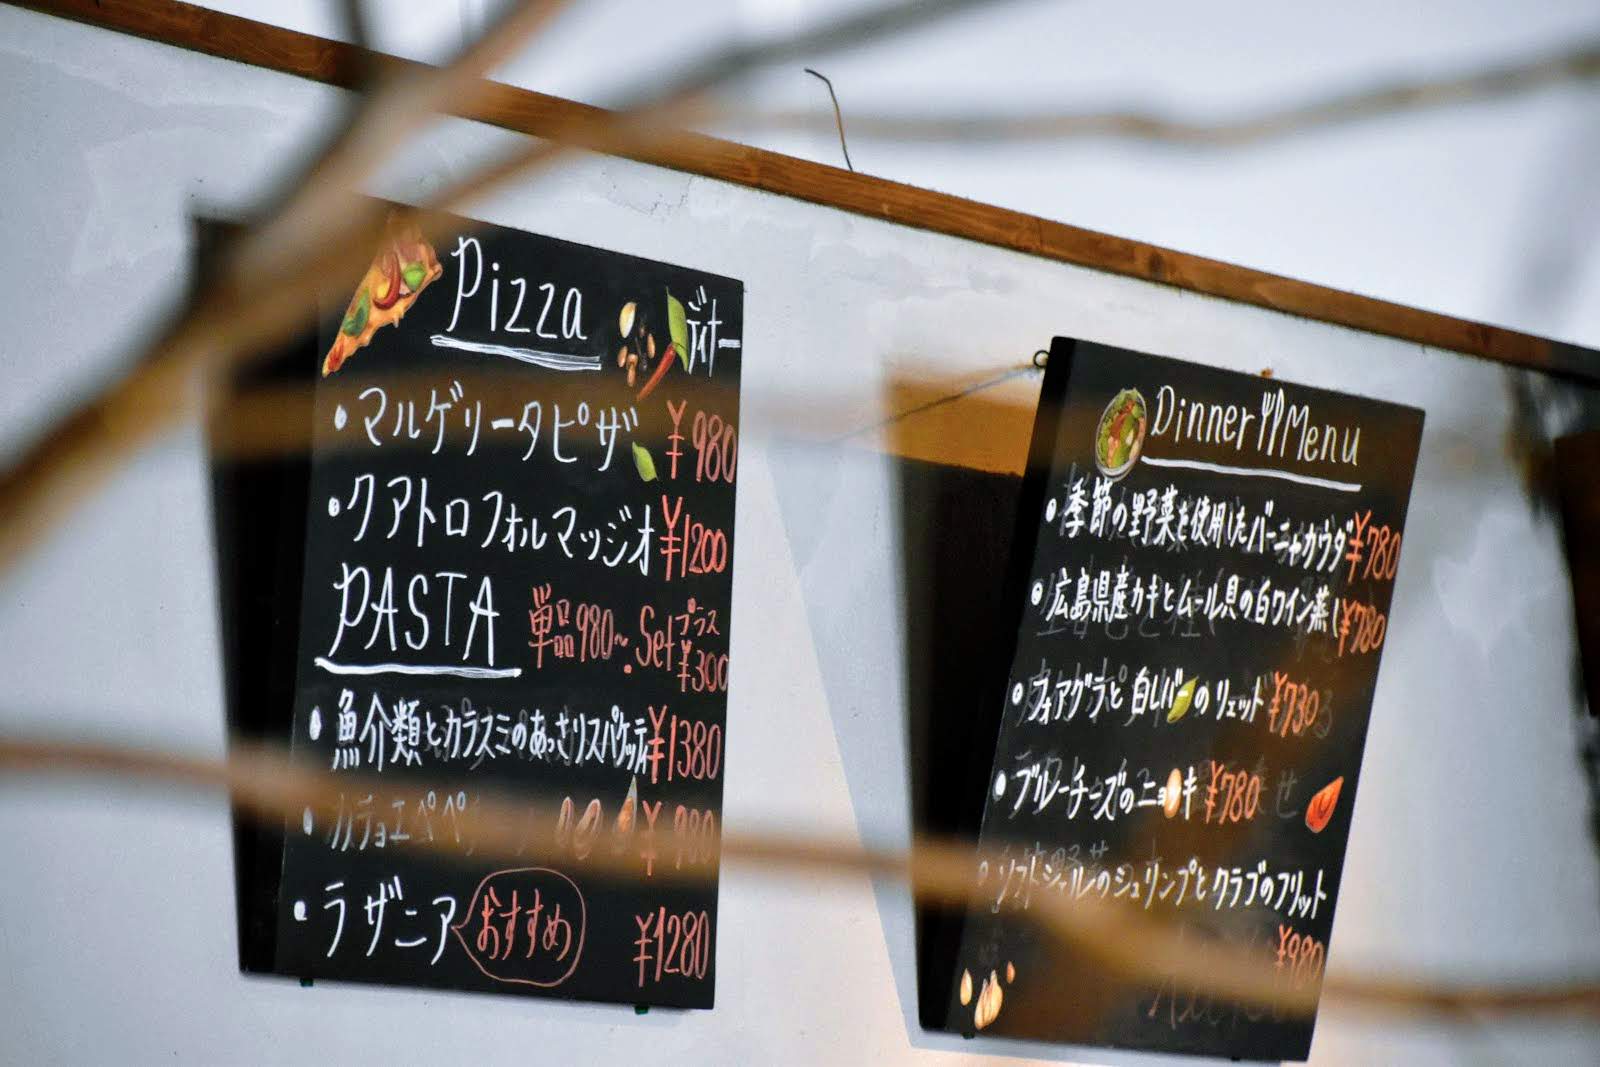 Pizza
ディナー
・マルゲリータピザ ¥980
・クアトロフォルマッジオ ¥1200
PASTA 単品980~. Set プラス ¥300
・魚介類とカラスミのあっさりスパゲッティ ¥1380
・カチョエペペ ¥980
・ラザニア おすすめ ¥1280
Dinner Menu
・季節の野菜を使用したバーニャカウダ ¥780
・広島県産カキとムール貝の白ワイン蒸し ¥780
・フォアグラと白レバーのリエット ¥730
・ブルーチーズのニョッキ ¥780
・ソフトシェルのシュリンプとクラブのフリット
¥980